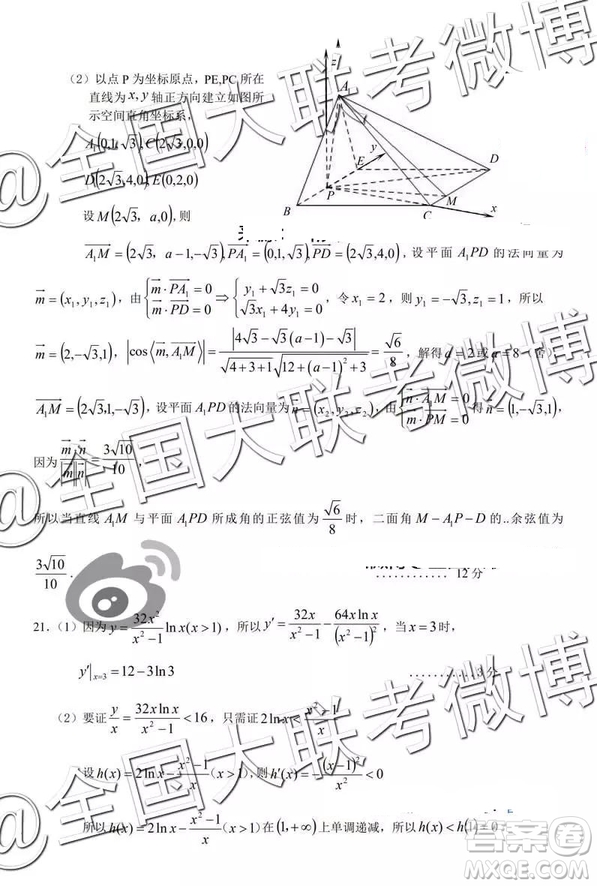 （2）以点 P 为坐标原点，PE,PC 所在
直线为 x, y 轴正方向建立如图所
示空间直角坐标系，
A₁(0,1,√3), C(2√3,0,0)
D(2√3,4,0), E(0,2,0)
设 M(2√3, a,0), 则
z
A₁
y
E
D
P
M
B
C
x
A₁M = (2√3, a-1,-√3), PA₁ = (0,1,√3), PD = (2√3,4,0), 设平面 A₁PD 的法向量为
m = (x₁, y₁, z₁), 由 {m·PA₁ = 0, m·PD = 0 ⇒ {y₁ + √3z₁ = 0, √3x₁ + 4y₁ = 0, 令 x₁ = 2, 则 y₁ = -√3, z₁ = 1, 所以
m = (2,-√3,1), |cos⟨m, A₁M⟩| = |4√3 - √3(a-1) - √3| / (√(4+3+1) √(12+(a-1)²+3)) = √6/8, 解得 a = 2 或 a = 8（舍）
A₁M = (2√3,1,-√3), 设平面 A₁PD 的法向量为 n = (x₂, y₂, z₂), 由 {n·A₁M = 0, m·PM = 0 得 n = (1,-√3,1),
因为 m·n / |m||n| = 3√10/10 ,
所以当直线 A₁M 与平面 A₁PD 所成角的正弦值为 √6/8 时，二面角 M - A₁P - D 的..余弦值为
3√10/10 . ............ 12 分
21.（1）因为 y = 32x²/(x²-1) ln x (x > 1), 所以 y′ = 32x/(x²-1) - 64x ln x/(x²-1)², 当 x = 3 时,
y′|ₓ₌₃ = 12 - 3 ln 3 ............ 3 分
（2）要证 y/x = 32x ln x/(x²-1) < 16, 只需证 2 ln x < (x²-1)/x
设 h(x) = 2 ln x - (x²-1)/x (x > 1), 则 h′(x) = -(x-1)²/x² < 0
所以 h(x) = 2 ln x - (x²-1)/x (x > 1) 在 (1, +∞) 上单调递减，所以 h(x) < h(1) = 0 ,
@全国大联考微博
@全国大联考微博
@全国大联考微博
答案圈
MXQE.COM